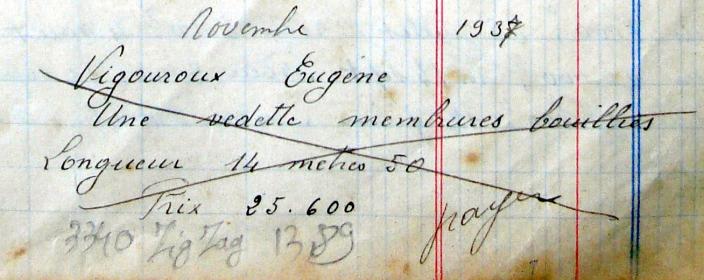 Novembre 1937
Vigouroux Eugène
Une vedette membrures bouillies
Longueur 14 mètres 50
Prix 25.600
payer
3340 Zig Zag 1389